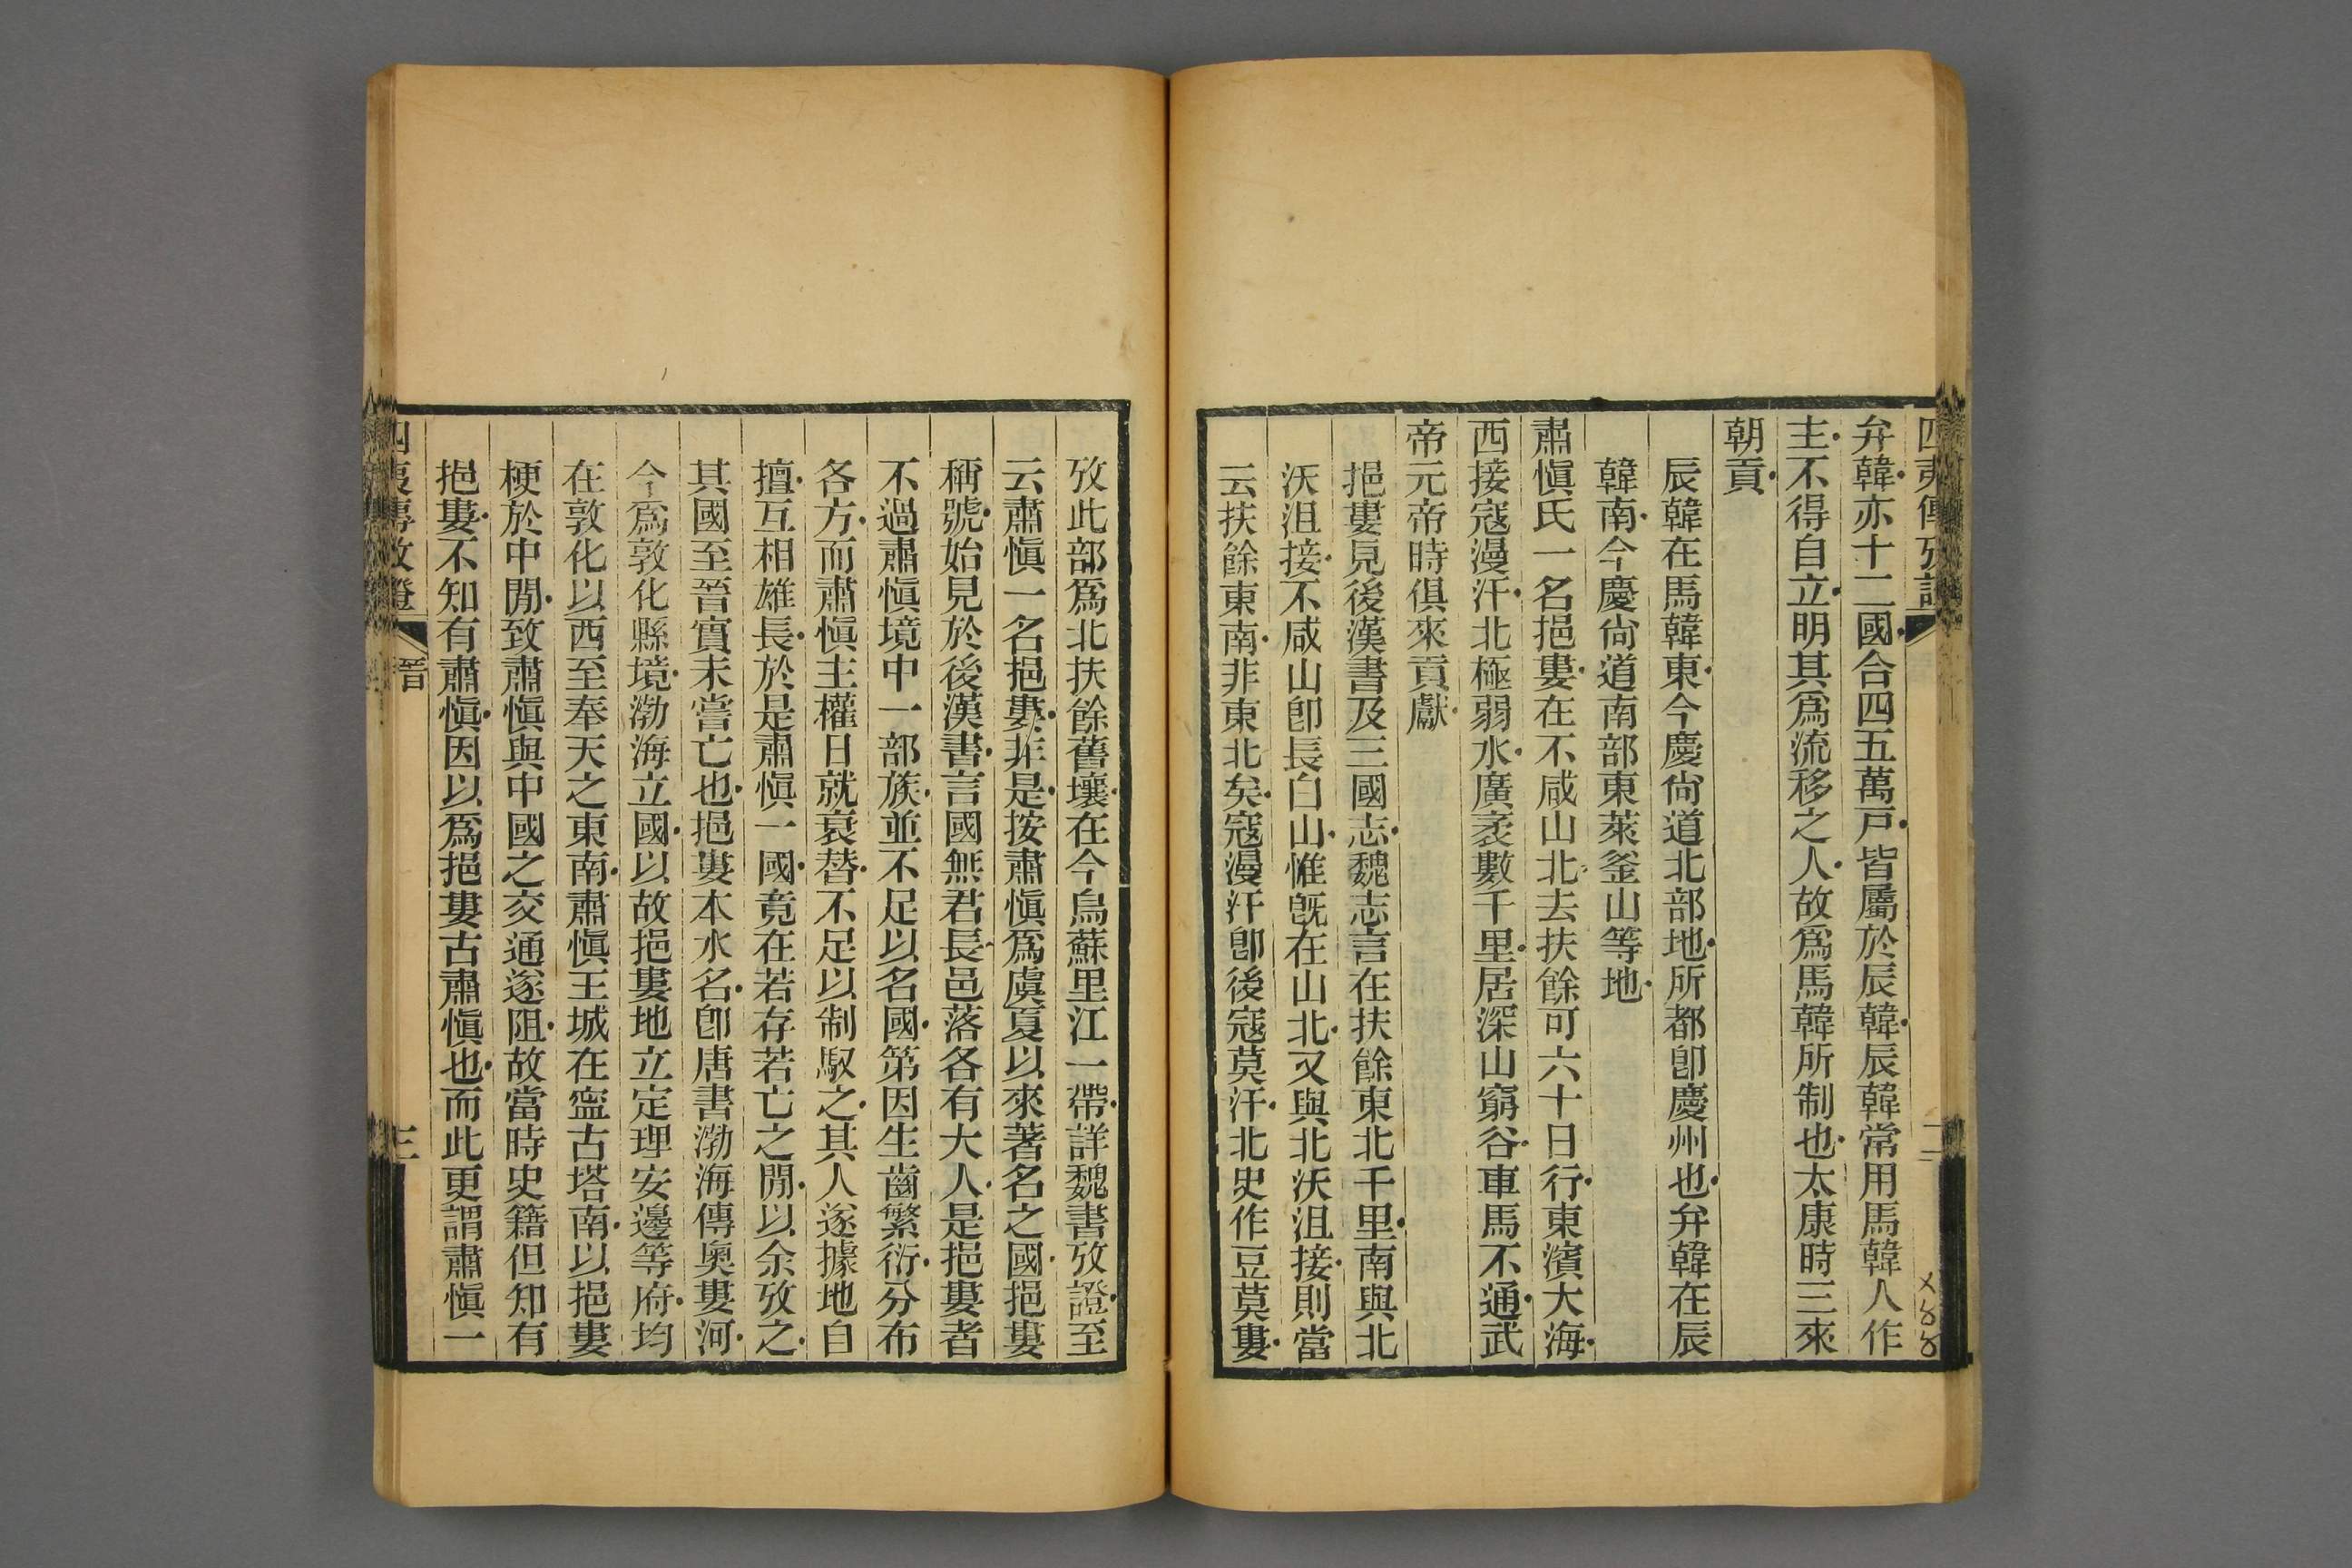 四夷傳攷證
二
弁韓亦十二國合四五萬戸皆屬於辰韓辰韓常用馬韓人作
主不得自立明其爲流移之人故爲馬韓所制也太康時三來
朝貢
辰韓在馬韓東今慶尙道北部地所都卽慶州也弁韓在辰
韓南今慶尙道南部東萊釜山等地
肅愼氏一名挹婁在不咸山北去扶餘可六十日行東濱大海
西接寇漫汗北極弱水廣袤數千里居深山窮谷車馬不通武
帝元帝時俱來貢獻
挹婁見後漢書及三國志魏志言在扶餘東北千里南與北
沃沮接不咸山卽長白山惟旣在山北又與北沃沮接則當
云扶餘東南非東北矣寇漫汗卽後寇莫汗北史作豆莫婁
攷此部爲北扶餘舊壤在今烏蘇里江一帶詳魏書攷證至
云肅愼一名挹婁非是按肅愼爲虞夏以來著名之國挹婁
稱號始見於後漢書言國無君長邑落各有大人是挹婁者
不過肅愼境中一部族並不足以名國第因生齒繁衍分布
各方而肅愼主權日就衰替不足以制馭之其人遂據地自
擅互相雄長於是肅愼一國竟在若存若亡之閒以余攷之
其國至晉實未嘗亡也挹婁本水名卽唐書渤海傳奧婁河
今爲敦化縣境渤海立國以故挹婁地立定理安邊等府均
在敦化以西至奉天之東南肅愼王城在寧古塔南以挹婁
梗於中閒致肅愼與中國之交通遂阻故當時史籍但知有
挹婁不知有肅愼因以爲挹婁古肅愼也而此更謂肅愼一
四夷傳攷證
晉
三